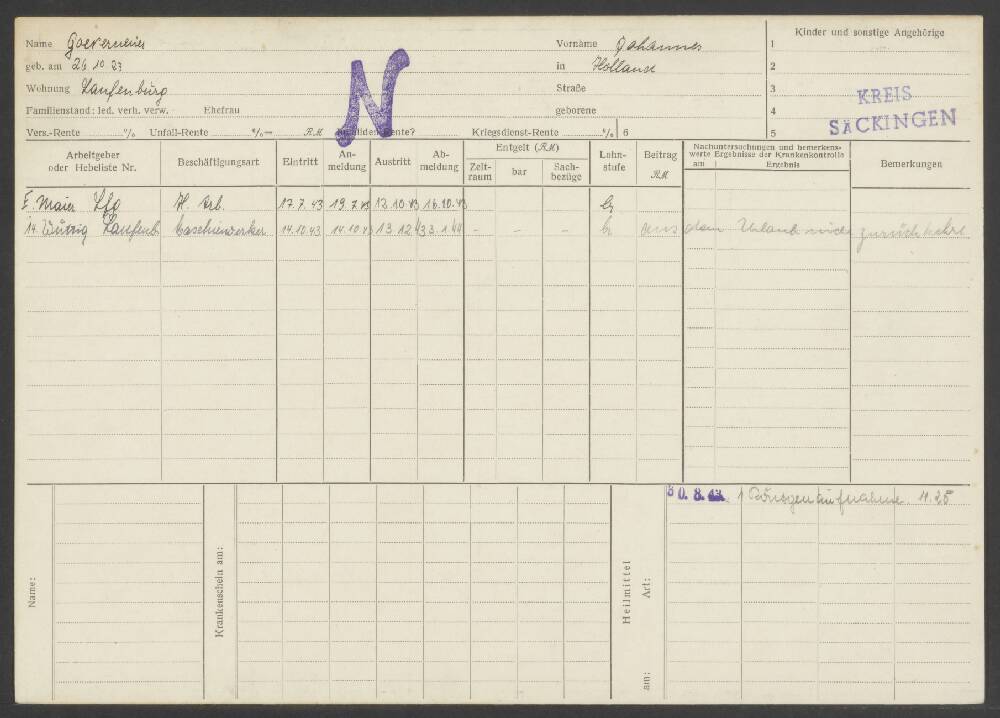 Name Vorname Johannes Kinder und sonstige Angehörige
geb. am 26 10 23 in Holland 1
2
Wohnung Laufenburg Straße 3
Familienstand: led. verh. verw. Ehefrau geborene 4
Vers.-Rente % Unfall-Rente %— RM Invalidenrente? Kriegsdienst-Rente % 6 5
N
KREIS
SÄCKINGEN
Arbeitgeber oder Hebeliste Nr. Beschäftigungsart Eintritt An-meldung Austritt Ab-meldung Entgelt (RM) Zeit-raum bar Sach-bezüge Lohn-stufe Beitrag RM Nachuntersuchungen und bemerkens-werte Ergebnisse der Krankenkontrolle am Ergebnis Bemerkungen
E. Maier Lfg H. Arb. 17.7.43 19.7.43 13.10.43 16.10.43
Laufenb 14.10.43 14.10.43 13 12 43 3.1.44 - - - aus dem Urlaub nicht zurückkehrt
30.8.43 1 Röntgenaufnahme 11.25
Name:
Krankenschein am:
Heilmittel
Art:
am: